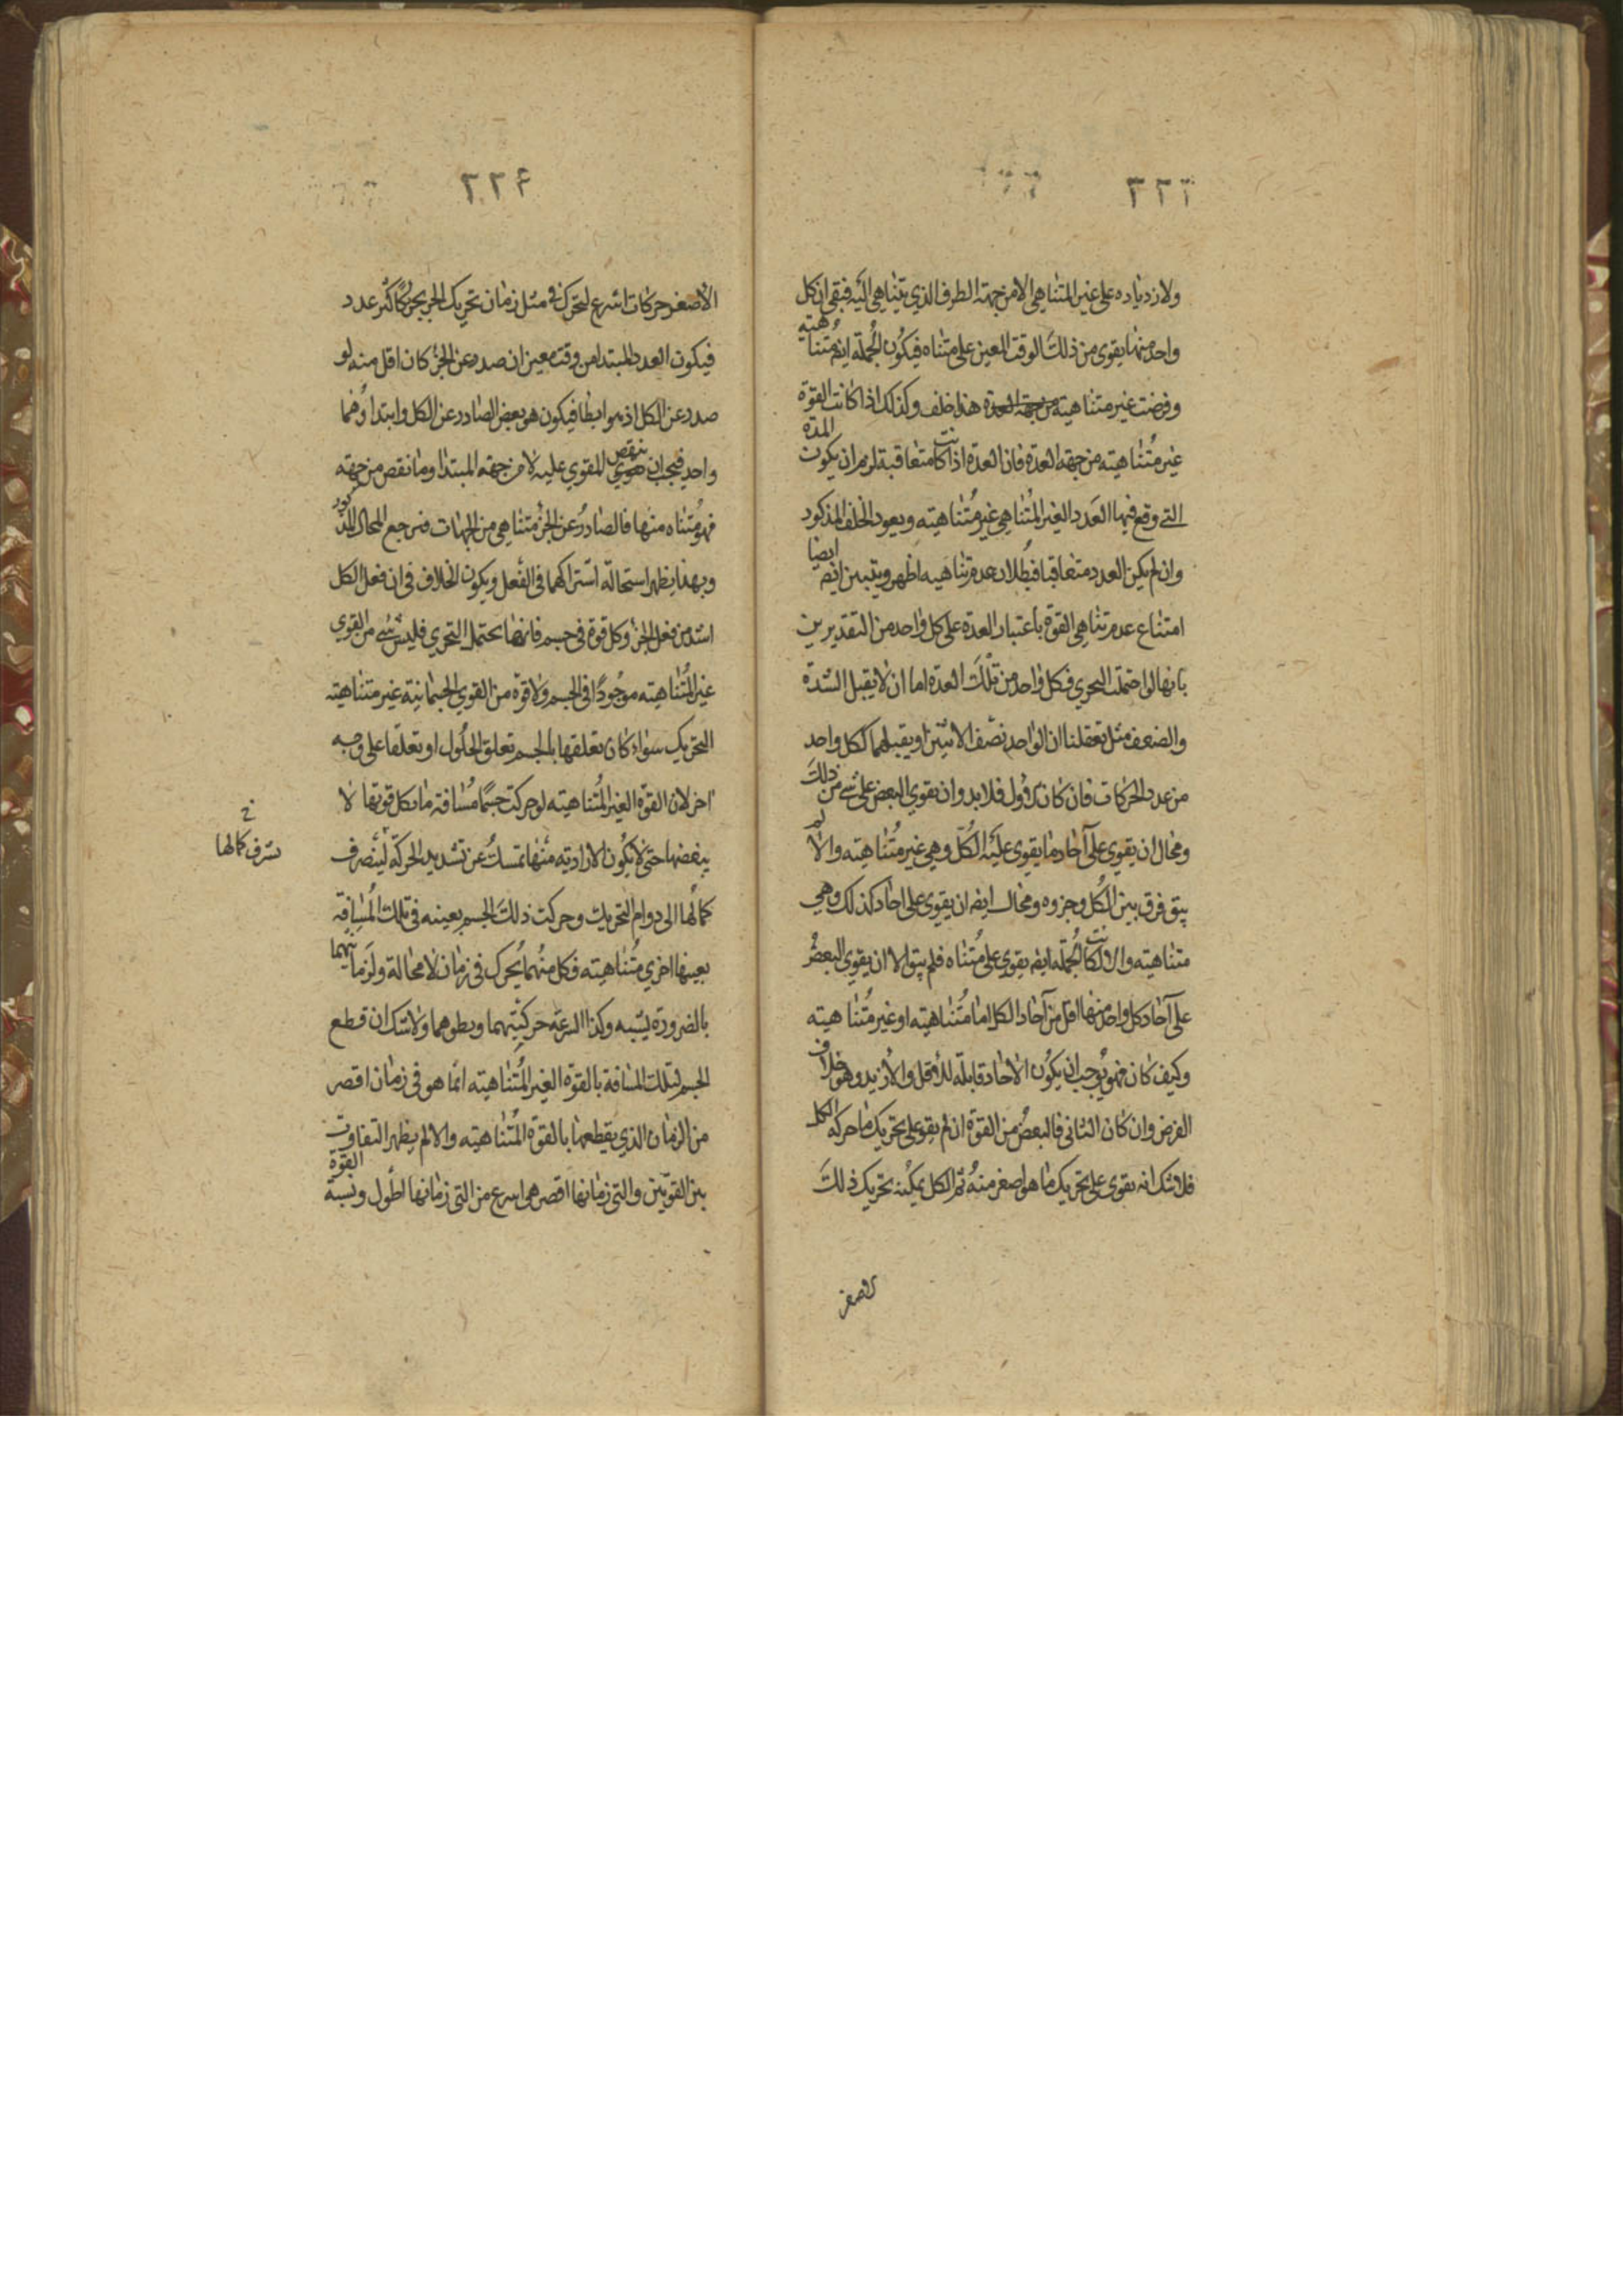 ٣٢٣
ولا ازدياده على غير المتناهي الا من جهة الطرف الذي يتناهى اليه فبقي ان كل
واحد منها يقوى من ذلك الوقت المعين على متناه فيكون الجملة ايضا متناهية
وفرضت غير متناهية من جهة العدة هذا خلف وكذلك اذا كانت القوة
غير متناهيته من جهة العدة فان العدة اذا كانت متعاقبة لزم ان يكون المدة
التي وقع فيها العدد الغير المتناهي غير متناهيته ويعود الخلف المذكور
وان لم يكن العدد متعاقبا فبطلان عدم تناهيه اظهر ويتبين ايضا
امتناع عدم تناهي القوة باعتبار العدة على كل واحد من التقديرين
بانها لو احتملت التجزي فكل واحد من تلك العدة اما ان لا يقبل الشدة
والضعف مثل تعقلنا ان الواحد نصف الاثنين او يقبلهما ككل واحد
من عدد الحركات فان كان الاول فلا بد وان يقوي البعض على شئ من ذلك
ومحال ان يقوى على آحاد ما يقوى عليه الكل وهي غير متناهيته والا لم
يبق فرق بين الكل وجزوه ومحال ايضا ان يقوى على احاد كذلك وهي
متناهيته والا لكانت الجملة ايضا يقوى على متناه فلم يبق الا ان يقوى البعض
على آحاد كل واحد منها اقل من آحاد الكل اما متناهيته او غير متناهيته
وكيف كان فهو يوجب ان يكون الاحاد قابلة للأقل والأزيد وهو خلاف
الفرض وان كان الثاني فالبعض من القوة ان لم يقو على تحريك ما حركه الكل
فلا شك انه يقوى على تحريك ما هو اصغر منه ثم الكل يمكنه تحريك ذلك
الاصغر
٣٢٤
الأصغر حركات اسرع لتحرك في مثل زمان تحريك الجزء تحركا اكثر عدد
فيكون العدد المبتدا من وقت معين ان صدر عن الجزء كان اقل منه لو
صدر عن الكل اذ هو ابطا فيكون هو بعض الصادر عن الكل وابتداؤهما
واحد فيجب ان ينقص المقوي عليه لا من جهة المبتدا وما نقص من جهة
فهو متناه منها فالصادر عن الجزء متناهي من الجهات فرجع المحال المذكور
وبهذا يظهر استحالة اشتراكهما في الفعل ويكون الخلاف في ان فعل الكل
اشد من فعل الجزء وكل قوة في جسم فانها تحتمل التجزي فليس شئ من القوي
غير المتناهيته موجودا في الجسم ولا قوة من القوي الجسمانية غير متناهيته
التحريك سواء كان تعلقها بالجسم تعلق الحلول او تعلقا على وجه
اخر لان القوة الغير المتناهيته لو حركت جسما مسافة ما بكل قوتها لا
ببعضها حتى لا يكون الارادية منها تمسك عن تشديد الحركة لينصرف
كمالها الى دوام التحريك وحركت ذلك الجسم بعينه في تلك المسافة
بعينها اخري متناهيته فكل منهما يحرك في زمان لا محالة ولزمانيهما
بالضرورة نسبة وكذا السرعة حركتيهما وبطوهما ولا شك ان قطع
الجسم لتلك المسافة بالقوة الغير المتناهيته انما هو في زمان اقصر
من الزمان الذي يقطعها بالقوة المتناهيته والا لم يظهر التفاوت
بين القوتين والتي زمانها اقصر هي اسرع من التي زمانها اطول ونسبة القوة
خ
كمالها